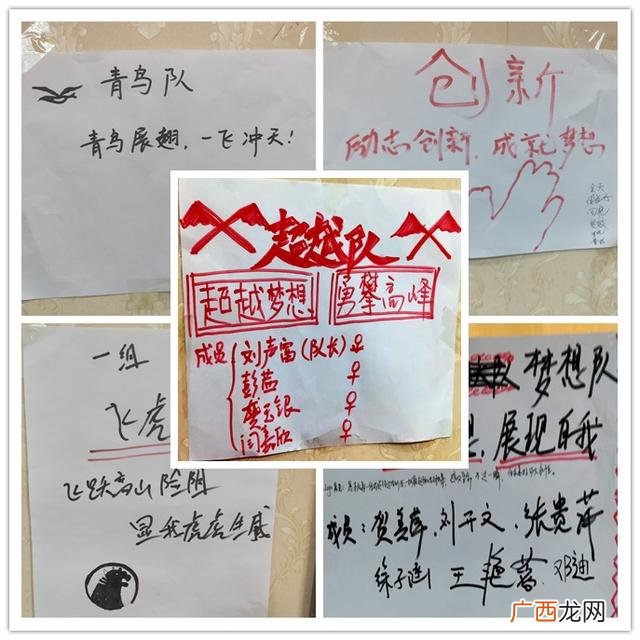 青鸟队
青鸟展翅，一飞冲天！
创新
励志创新，成就梦想
超越队
超越梦想
勇攀高峰
成员
刘声富（队长）
彭茜
樊云银
闫嘉欣
一组
飞虎
飞跃高山险阻
显我虎虎生威
队 梦想队
展现自我
成员：贺美萍、刘子文、张贵萍
徐子涵 王艳蓉、邓迪
广西龙网